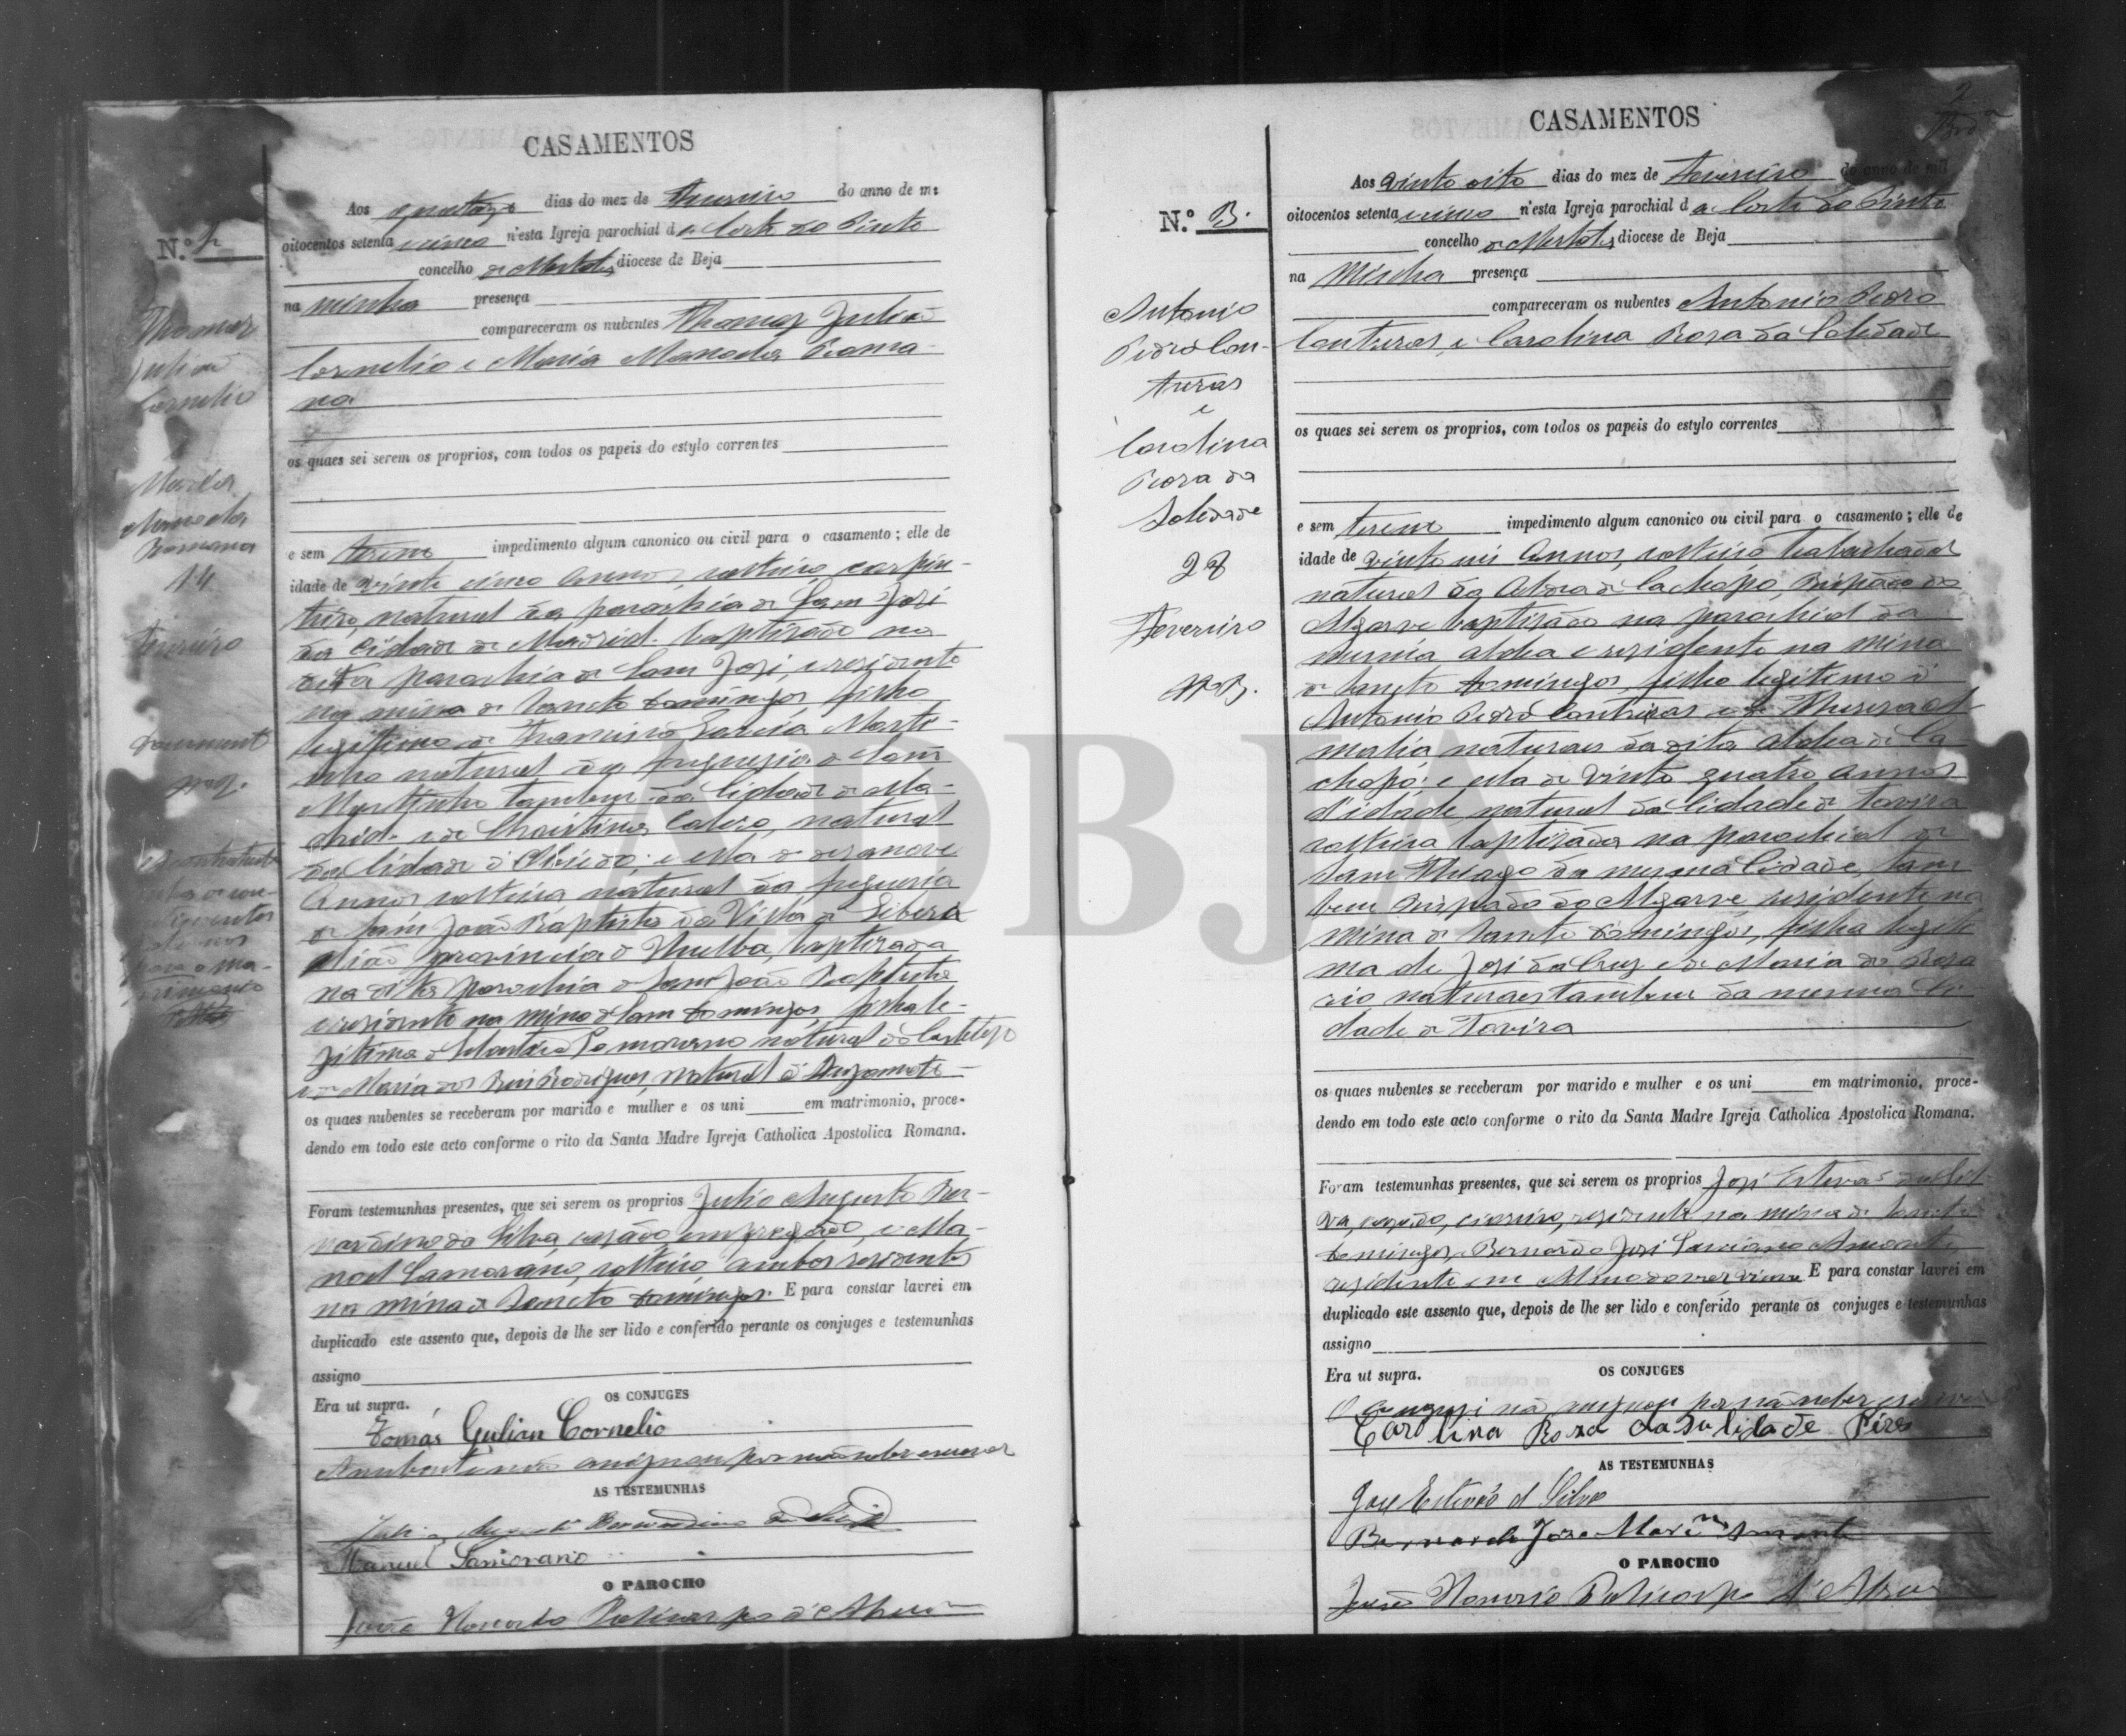 CASAMENTOS
N.º 2
Aos quatorze dias do mez de Fevereiro do anno de mil
oitocentos setenta e cinco n'esta Igreja parochial da Corte do Pinto
concelho de Mertola, diocese de Beja
na minha presença
compareceram os nubentes Thomaz Julião
Cornelio e Maria Manoela Roma-
na
os quaes sei serem os proprios, com todos os papeis do estylo correntes
e sem terem impedimento algum canonico ou civil para o casamento; elle de
idade de vinte cinco annos, solteiro, carpin-
teiro, natural da parochia de Sam José
da Cidade de Madrid baptisado na
dita parochia de Sam José, e residente
na mina de Sancto Domingos, filho
legitimo de Francisco Garcia Marti-
nho natural da freguesia de Sam
Martinho tambem da Cidade de Ma-
drid e de Christina natural
da Cidade d'Oviedo; e ella de desanove
Annos solteira natural da freguesia
de Sam João Baptista da Villa de
provincia d'Huelba, baptisada
na dita parochia de Sam João Baptista
e residente na mina de Sam Domingos, filha le-
gitima de natural do Castelejo
e de Maria dos Reis Rodrigues, natural d'Aiyamonte
os quaes nubentes se receberam por marido e mulher e os uni em matrimonio, proce-
dendo em todo este acto conforme o rito da Santa Madre Igreja Catholica Apostolica Romana.
Foram testemunhas presentes, que sei serem os proprios Julio Augusto Ber-
nardino da Silva, casado, empregado, e Ma-
noel Samorano, solteiro, ambos residentes
na mina de Sancto Domingos. E para constar lavrei em
duplicado este assento que, depois de lhe ser lido e conferido perante os conjuges e testemunhas
assigno
Era ut supra.
OS CONJUGES
Tomás Gulian Cornelio
A nubente não assignou por não saber escrever
AS TESTEMUNHAS
Julio Augusto Bernardino da Silva
Manuel Samorano
O PAROCHO
João Honorio Policarpo d'Abreu
Thomaz
Julião
Cornelio
e
Maria
Manoela
Romana
14
Fevereiro
CASAMENTOS
2
N.º 3.
Aos vinte oito dias do mez de Fevereiro do anno de mil
oitocentos setenta e cinco n'esta Igreja parochial da Corte do Pinto
concelho de Mertola, diocese de Beja
na minha presença
compareceram os nubentes Antonio Pedro
Contreras, e Carolina Rosa da Soledade
os quaes sei serem os proprios, com todos os papeis do estylo correntes
e sem terem impedimento algum canonico ou civil para o casamento; elle de
idade de vinte seis Annos, solteiro, trabalhador
natural da Aldea de Cachopo, Bispado do
Algarve baptisado na parochial da
mesma aldea e residente na mina
de Sancto Domingos, filho legitimo d'
Antonio Pedro Contreras e de Thereza A
malia naturaes da dita Aldea de Ca
chopo; e ella de vinte quatro Annos
d'idade natural da Cidade de Tavira
solteira baptisada na parochial de
Sam Thiago da mesma Cidade, tam
bem Bispado do Algarve, residente na
mina de Sancto Domingos, filha legiti
ma de José da Cruz e de Maria do Rosa
rio naturaes tambem da mesma Ci
dade de Tavira
os quaes nubentes se receberam por marido e mulher e os uni em matrimonio, proce-
dendo em todo este acto conforme o rito da Santa Madre Igreja Catholica Apostolica Romana.
Foram testemunhas presentes, que sei serem os proprios José Estevão da Sil
va, casado, residente na mina de Sancto
Domingos, e Bernardo José
residente em E para constar lavrei em
duplicado este assento que, depois de lhe ser lido e conferido perante os conjuges e testemunhas
assigno
Era ut supra.
OS CONJUGES
O conjuge não assignou por não saber escrever
Carolina Roza da Sulidade Pires
AS TESTEMUNHAS
José Estevão d Silva
Bernardo Joze
O PAROCHO
João Honorio Policarpo d'Abreu
Antonio
Pedro Con-
treras
e
Carolina
Rosa da
Soledade
28
Fevereiro
ADBJA